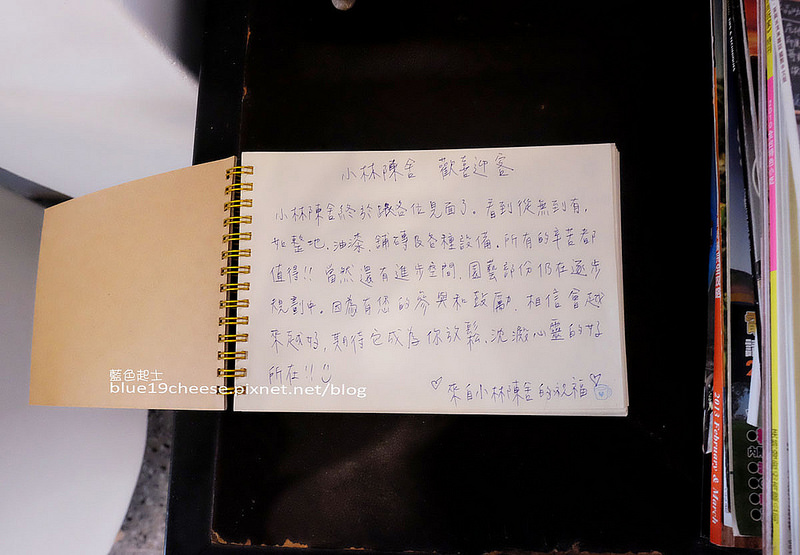 小林陳舍 歡喜迎客
小林陳舍終於跟各位見面了。看到從無到有,
如整地、油漆、鋪磚及各種設備。所有的辛苦都
值得!! 當然還有進步空間,園藝部份仍在逐步
規劃中。因為有您的參與和鼓勵,相信會越
來越好,期待它成為你放鬆、沈澱心靈的好
所在!!
來自小林陳舍的祝福
藍色起士
blue19cheese.pixnet.net/blog
2013 February & March